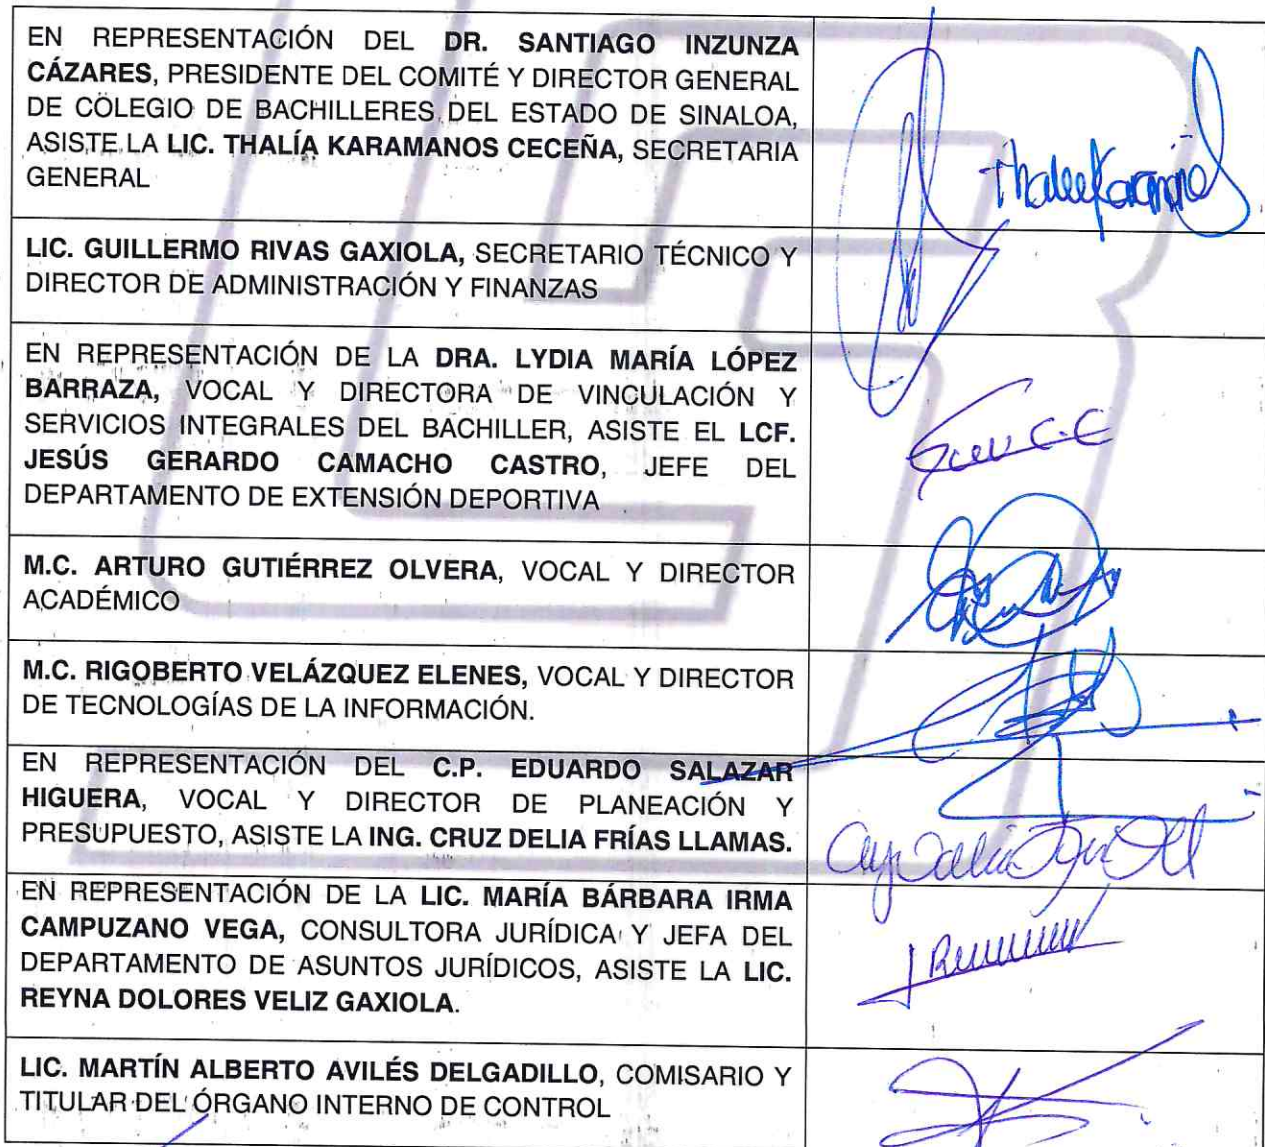 EN REPRESENTACIÓN DEL DR. SANTIAGO INZUNZA
CÁZARES, PRESIDENTE DEL COMITÉ Y DIRECTOR GENERAL
DE COLEGIO DE BACHILLERES DEL ESTADO DE SINALOA,
ASISTE LA LIC. THALÍA KARAMANOS CECEÑA, SECRETARIA
GENERAL
LIC. GUILLERMO RIVAS GAXIOLA, SECRETARIO TÉCNICO Y
DIRECTOR DE ADMINISTRACIÓN Y FINANZAS
EN REPRESENTACIÓN DE LA DRA. LYDIA MARÍA LÓPEZ
BARRAZA, VOCAL Y DIRECTORA DE VINCULACIÓN Y
SERVICIOS INTEGRALES DEL BACHILLER, ASISTE EL LCF.
JESÚS GERARDO CAMACHO CASTRO, JEFE DEL
DEPARTAMENTO DE EXTENSIÓN DEPORTIVA
M.C. ARTURO GUTIÉRREZ OLVERA, VOCAL Y DIRECTOR
ACADÉMICO
M.C. RIGOBERTO VELÁZQUEZ ELENES, VOCAL Y DIRECTOR
DE TECNOLOGÍAS DE LA INFORMACIÓN.
EN REPRESENTACIÓN DEL C.P. EDUARDO SALAZAR
HIGUERA, VOCAL Y DIRECTOR DE PLANEACIÓN Y
PRESUPUESTO, ASISTE LA ING. CRUZ DELIA FRÍAS LLAMAS.
EN REPRESENTACIÓN DE LA LIC. MARÍA BÁRBARA IRMA
CAMPUZANO VEGA, CONSULTORA JURÍDICA Y JEFA DEL
DEPARTAMENTO DE ASUNTOS JURÍDICOS, ASISTE LA LIC.
REYNA DOLORES VELIZ GAXIOLA.
LIC. MARTÍN ALBERTO AVILÉS DELGADILLO, COMISARIO Y
TITULAR DEL ÓRGANO INTERNO DE CONTROL